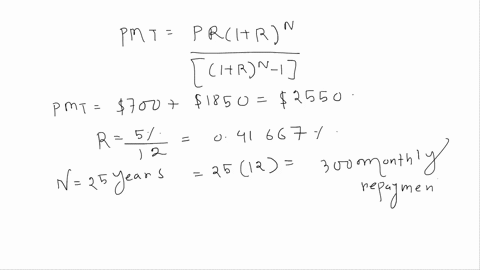 PMT = PR(1+R)^N
[(1+R)^N-1]
PMT = $700 + $1850 = $2550.
R = 5%/12 = 0.41667%.
N = 25 years = 25(12) = 300 monthly
repaymen